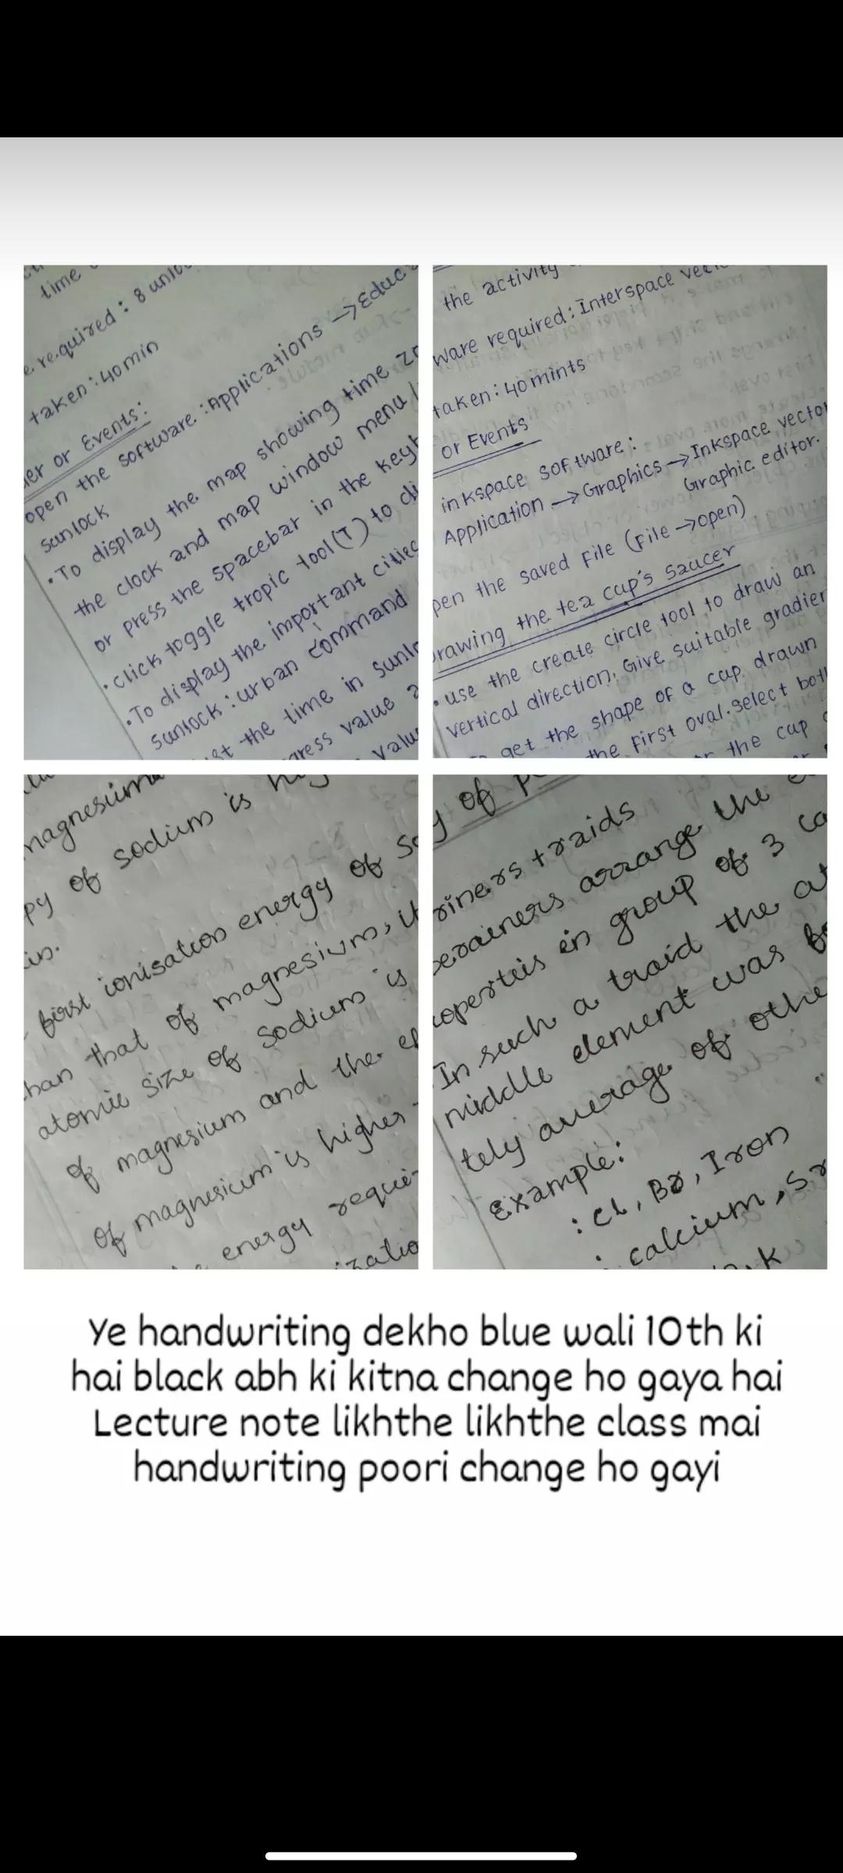 time
required : 8 unloc
taken : 40min
er or Events:
open the software :Applications → Educ
sunlock
• To display the map showing time zo
the clock and map window menu
or press the spacebar in the keyb
• click toggle tropic tool(T) to di
• To display the important cities
Sunlock : urban command
the time in sunlo
value
valu
the activity
ware required : Interspace vec
taken : 40 mints
or Events
inkspace software :
Application → Graphics → Inkspace vector
Graphic editor.
pen the saved File (File → open)
rawing the tea cup's saucer
• use the create circle tool to draw an
vertical direction, Give suitable gradien
get the shape of a cap, drawn
the First oval. select bot
the cup
magnesium
py of sodium is
in.
first ionisation energy of So
han that of magnesium, it
atomic size of sodium is
of magnesium and the ef
of magnesium is higher
energy requir
izatio
y of p
riners traids
arrange the
in group of 3 ca
In such a traid the at
middle element was fo
tely average of othe
Example:
: CL, Br, Iron
: calcium, Sr
, K
Ye handwriting dekho blue wali 10th ki
hai black abh ki kitna change ho gaya hai
Lecture note likhthe likhthe class mai
handwriting poori change ho gayi